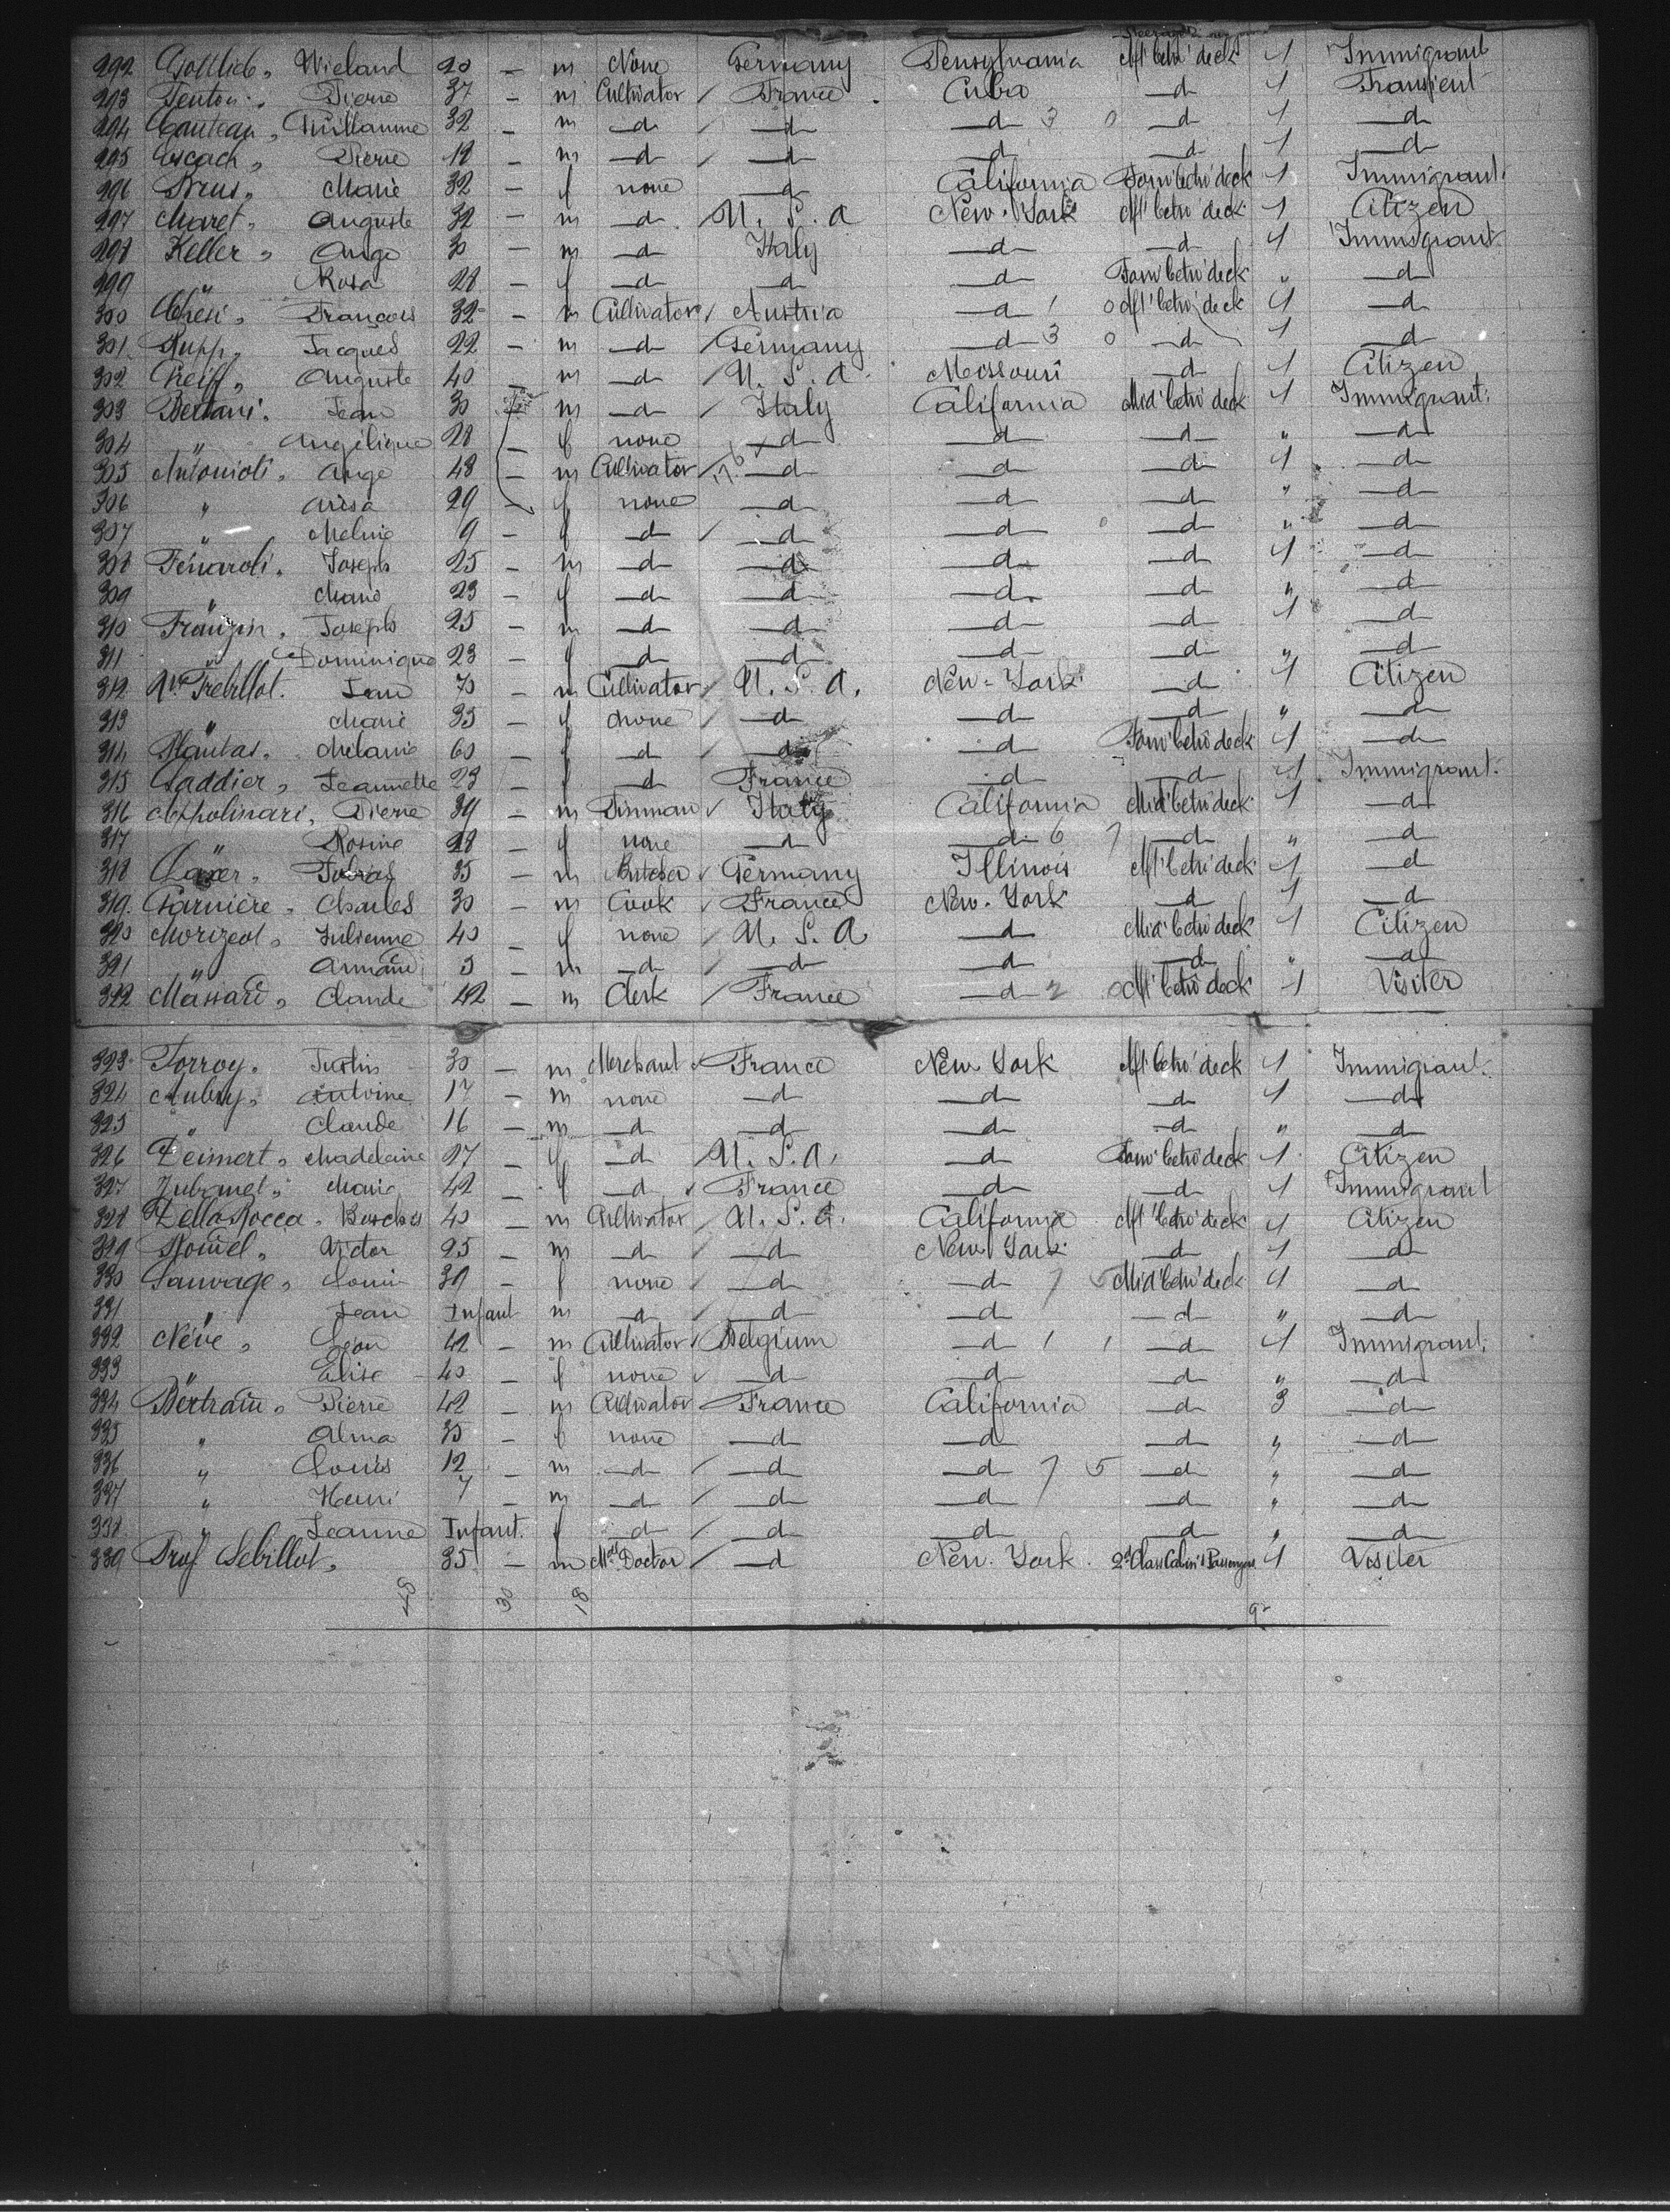 292 Gottlieb, Wieland 20 — m None Germany Pensylvania Af' betw' deck 1 Immigrant
293 Pierre 37 — m Cultivator / France Cuba —d— 1 Transient
294 Guillaume 32 — m —d— / —d— —d— 3 0 —d— 1 —d—
295 Escach, Pierre 12 — m —d— / —d— —d— —d— 1 —d—
296 Marie 32 — f none —d— California Forw' betw' deck 1 Immigrant.
297 Maret, Auguste 32 — m —d— U. S. A New-York Af' betw' deck 1 Citizen
298 Keller, Ange 30 — m —d— Italy —d— —d— 1 Immigrant
299 " Rosa 28 — f —d— —d— —d— Forw' betw' deck " —d—
300 François 32 — m Cultivator / Austria —d— 1 0 Af' betw' deck 1 —d—
301 Rupp, Jacques 22 — m —d— / Germany —d— 3 0 —d— 1 —d—
302 Reiff, Auguste 40 — m —d— / U. S. A. Missouri —d— 1 Citizen
303 Bertani, Jean 30 m —d— / Italy California Mid' betw' deck 1 Immigrant.
304 " Angélique 28 — f none —d— —d— —d— " —d—
305 Antonioli, Ange 48 — m Cultivator / —d— —d— —d— 1 —d—
306 " 29 — f none —d— —d— —d— " —d—
307 " Melnie 9 — f —d— / —d— —d— —d— " —d—
308 Fenaroli, Joseph 25 — m —d— —d— —d— —d— 1 —d—
309 " Marie 23 — f —d— —d— —d— —d— " —d—
310 Franzin, Joseph 25 — m —d— —d— —d— —d— 1 —d—
311 " Dominique 23 — f —d— —d— —d— —d— " —d—
312 Trebillot. Jean 70 — m Cultivator / U. S. A. New-York —d— 1 Citizen
313 " Marie 35 — f none / —d— —d— —d— " —d—
314 Melanie 60 — f —d— —d— —d— Forw' betw' deck 1 —d—
315 Gaddier, Jeannette 23 — f —d— France —d— —d— 1 Immigrant.
316 Appolinari, Pierre 34 — m Italy California Mid' betw' deck 1 —d—
317 " Rosine 28 — f none —d— —d— 6 7 —d— " —d—
318 35 — m Butcher Germany Illinois Af' betw' deck 1 —d—
319 Garnière, Charles 30 — m Cook France New-York —d— 1 —d—
320 Morizeot, Julienne 40 — f none / U. S. A —d— Mid' betw' deck 1 Citizen
321 " Armand 5 — m —d— —d— —d— —d— " —d—
322 Massard, Claude 42 — m Clerk / France —d— 2 0 Af' betw' deck 1 Visiter
323 Torroy, Justin 30 — m Merchant France New York Af' betw' deck 1 Immigrant.
324 Aubry, Antoine 17 — m none —d— —d— —d— 1 —d—
325 " Claude 16 — m —d— —d— —d— —d— " —d—
326 Deimert, Madeleine 27 — f —d— U. S. A. —d— Forw' betw' deck 1 Citizen
327 Marie 42 — f —d— France —d— —d— 1 Immigrant
328 Della Rocca, 40 — m Cultivator U. S. A. California Af' betw' deck 1 Citizen
329 Victor 25 — m —d— —d— New York —d— 1 —d—
330 Sauvage, Louise 30 — f none / —d— —d— 7 5 Mid' betw' deck 1 —d—
331 " Jean Infant m —d— / —d— —d— —d— " —d—
332 Nève, Léon 42 — m Cultivator / Belgium —d— 1 1 —d— 1 Immigrant.
333 " Elise 40 — f none —d— —d— —d— " —d—
334 Bertrain, Pierre 42 — m Cultivator France California —d— 3 —d—
335 " Alma 35 — f none —d— —d— —d— " —d—
336 " Louis 12 — m —d— / —d— —d— 7 5 —d— " —d—
337 " Henri 7 — m —d— / —d— —d— —d— " —d—
338 " Jeanne Infant. f —d— / —d— —d— —d— " —d—
339 Prof Sebillot, 35 — m Mcl Doctor / —d— New-York. 2d Class Cabin Passengers 1 Visiter
48 30 18 92